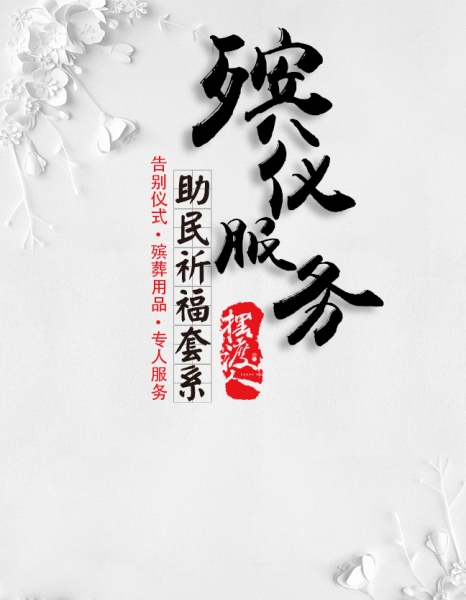 殡仪服务
助民祈福套系
告别仪式·殡葬用品·专人服务
摆渡人